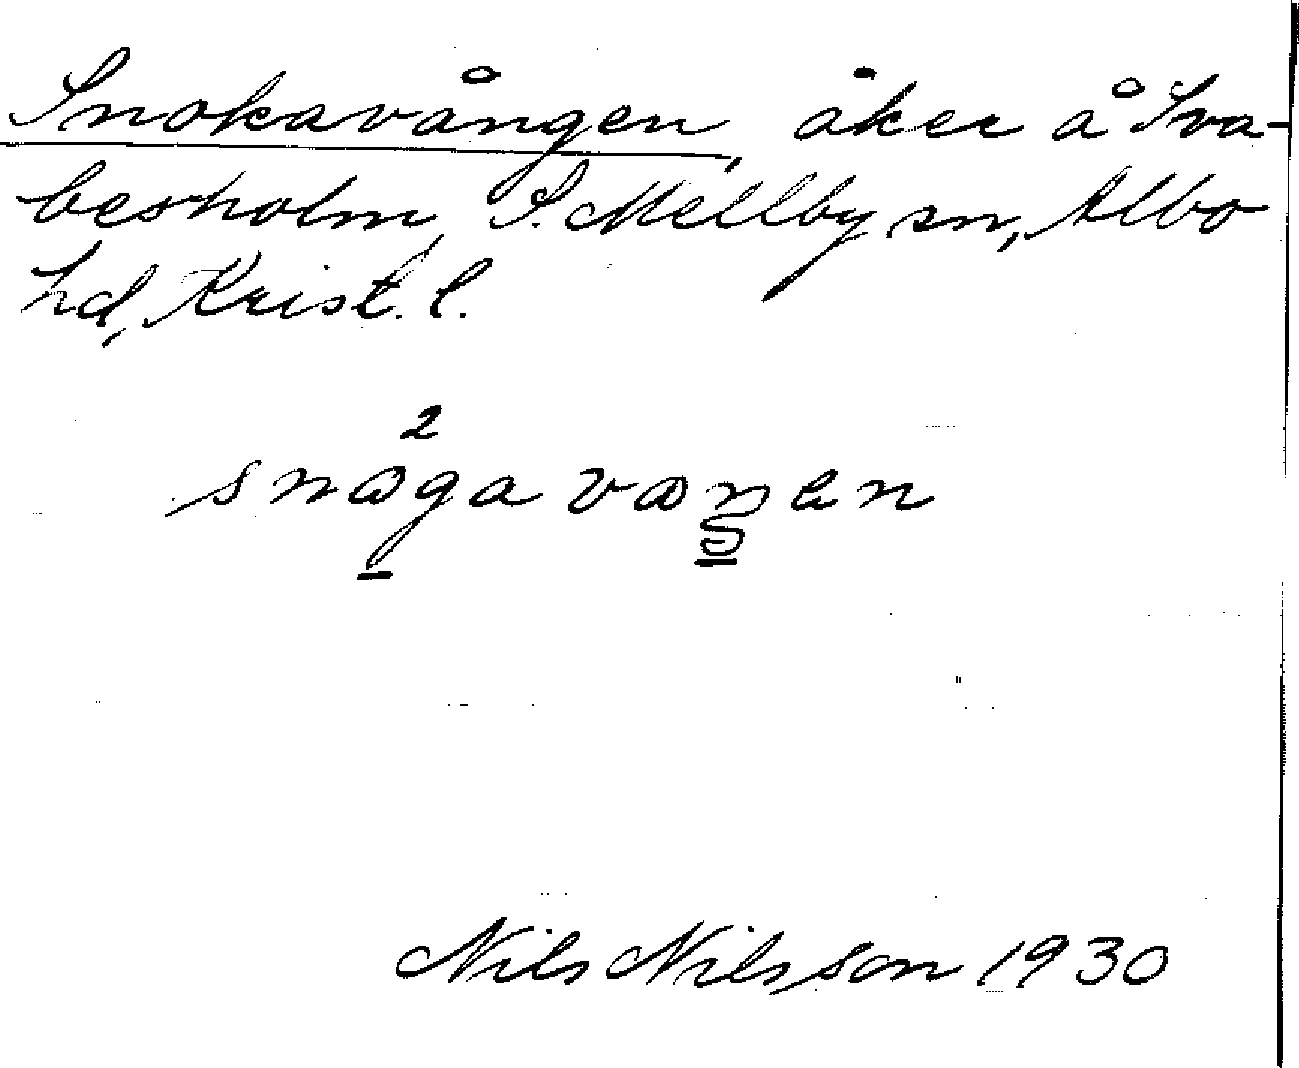 Snokavången, åker å Sva-
besholm, S. Mellby sn, Albo
hd, Krist. l.
2
snåga våŋen
Nils Nilsson 1930